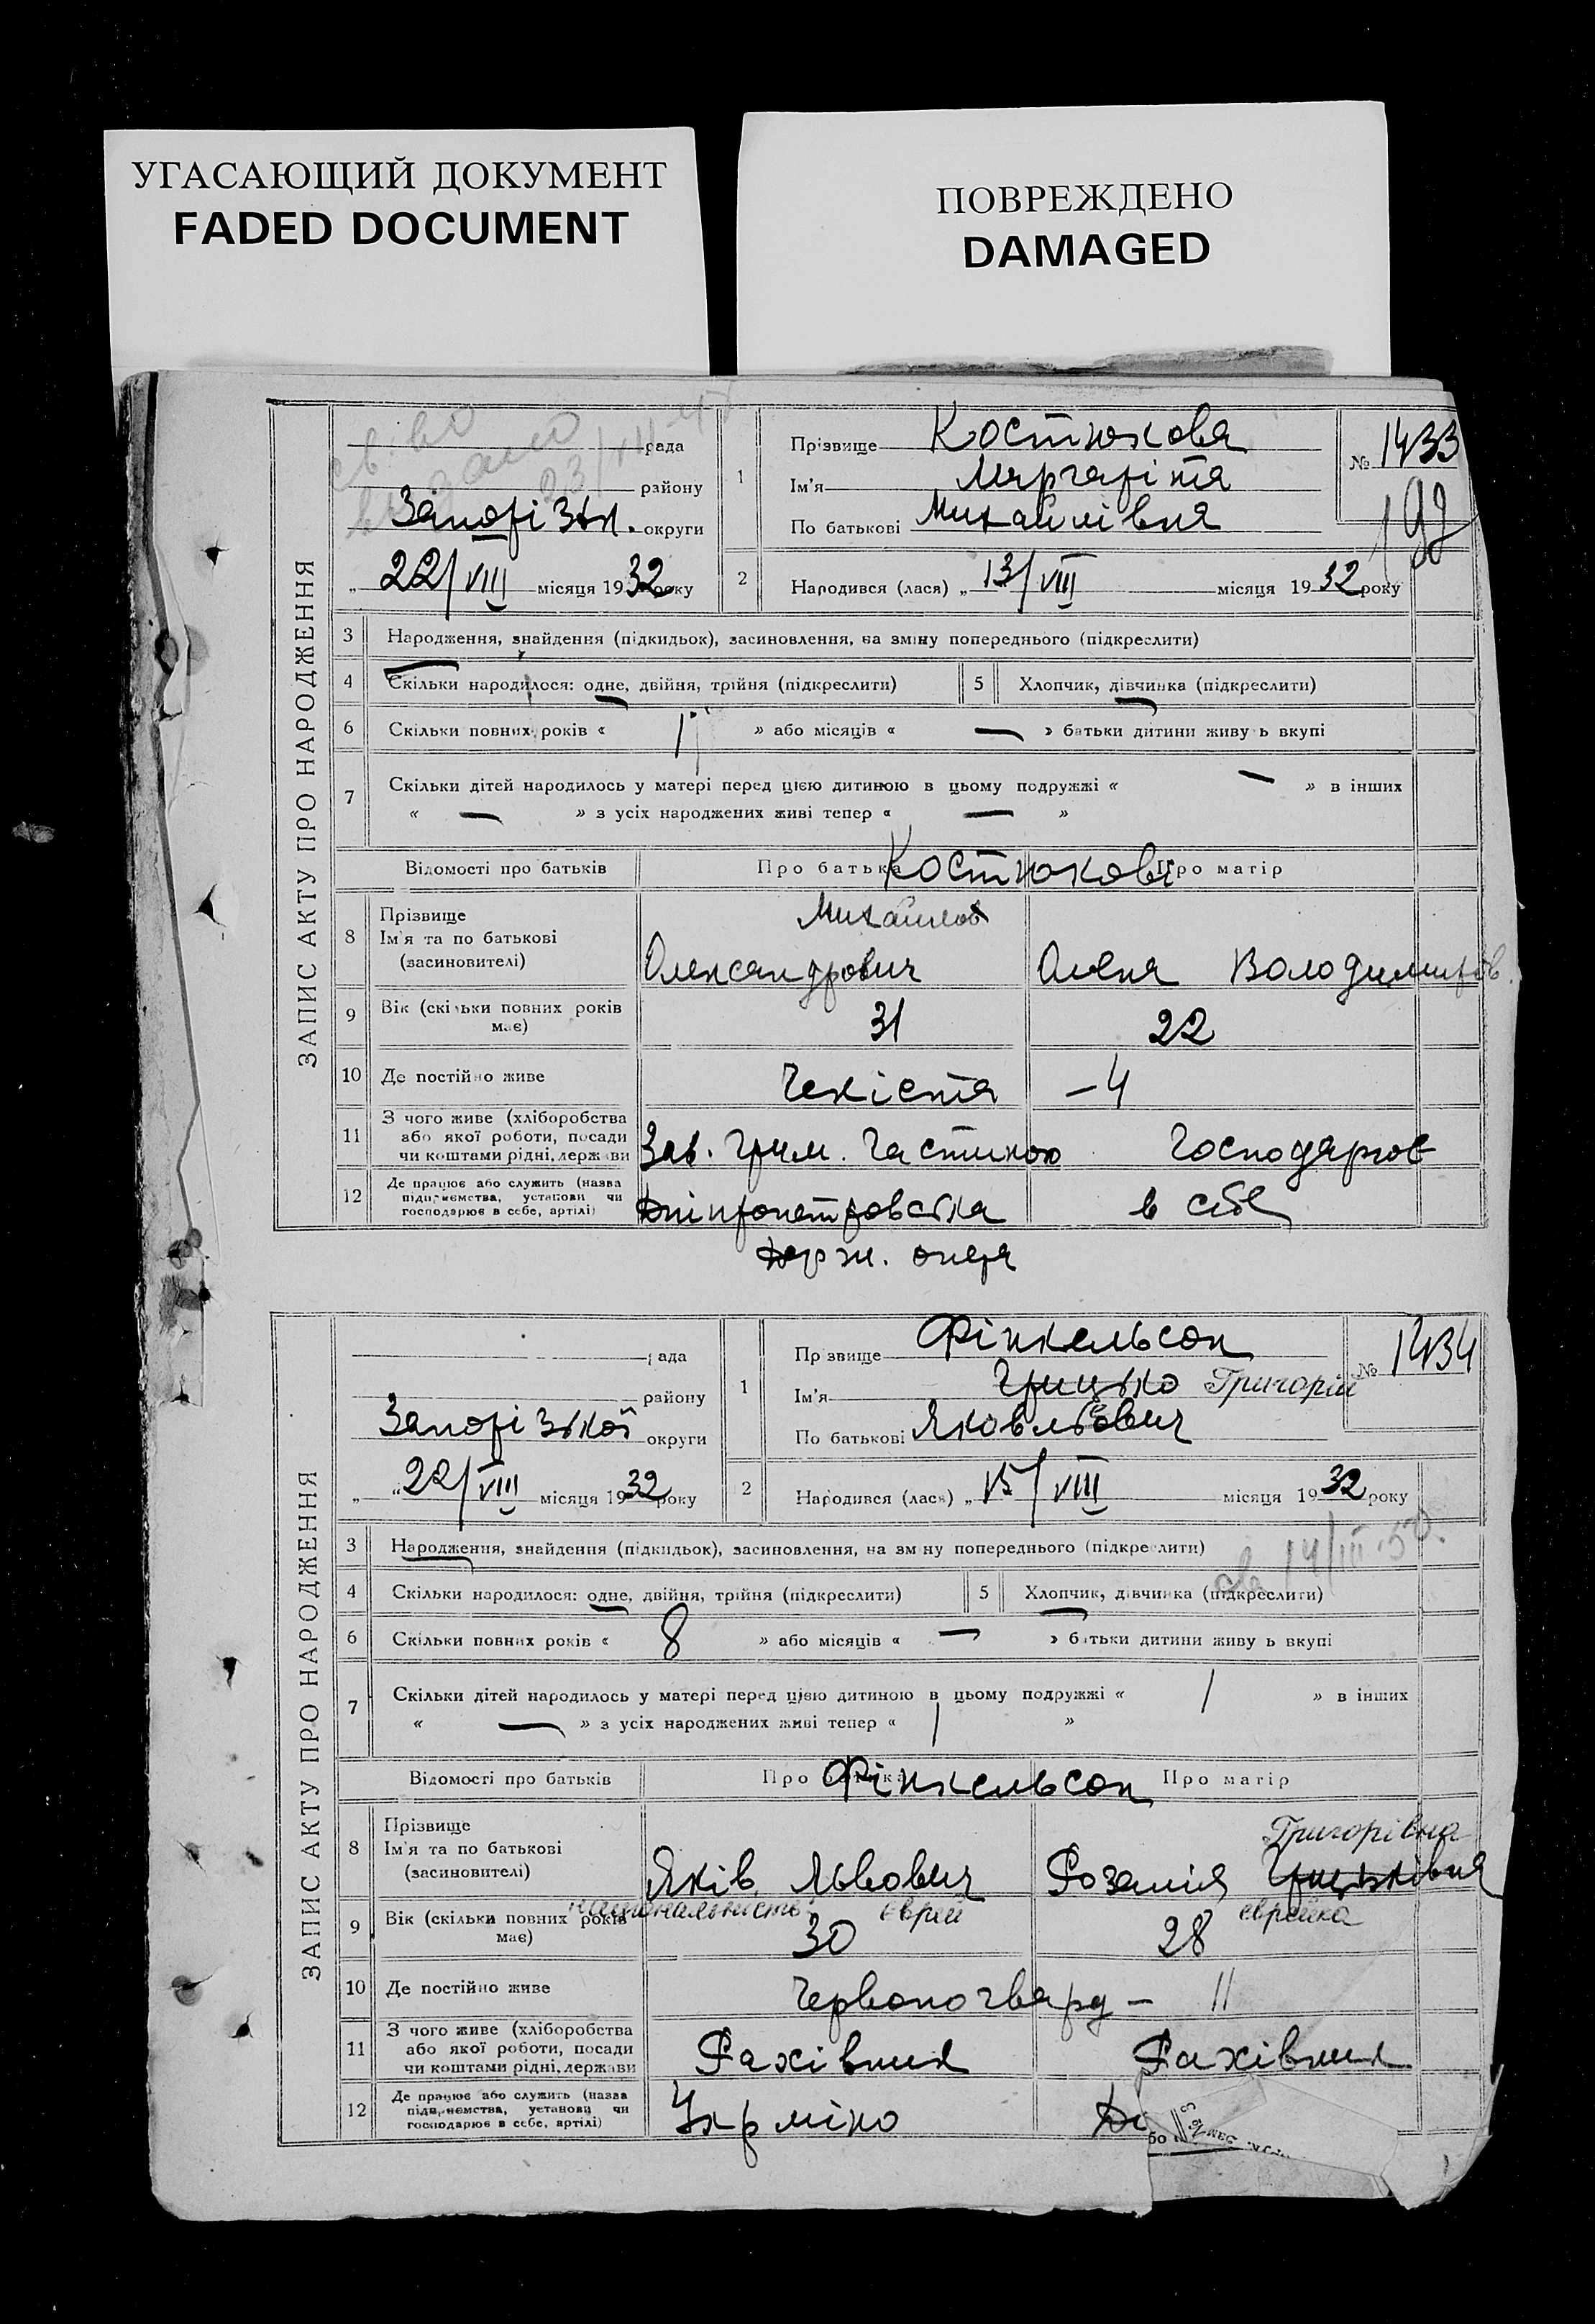 УГАСАЮЩИЙ ДОКУМЕНТ
FADED DOCUMENT
ПОВРЕЖДЕНО
DAMAGED
ЗАПИС АКТУ ПРО НАРОДЖЕННЯ
рада
району
Запорізьк. округи
„ 22/VIII місяця 1932 року
1 Прізвище Костюкова
Ім'я Маргаріта
По батькові Михайлівна
№ 1433
2 Народився (лася) „ 13/VIII місяця 1932 року
3 Народження, знайдення (підкидьок), засиновлення, на зміну попереднього (підкреслити)
4 Скільки народилося: одне, двійня, трійня (підкреслити) 5 Хлопчик, дівчинка (підкреслити)
6 Скільки повних років « 1 » або місяців « — » батьки дитини живу ь вкупі
7 Скільки дітей народилось у матері перед цією дитиною в цьому подружжі « — » в інших
« — » з усіх народжених живі тепер « — »
Відомості про батьків Про батька Про матір
Костюкови
8 Прізвище
Ім'я та по батькові
(засиновителі)
Михайлов
Олександрович Олена Володимирів.
9 Вік (скільки повних років має) 31 22
10 Де постійно живе Чекіста – 4
11 З чого живе (хліборобства
або якої роботи, посади
чи коштами рідні, держави
Зав. грим. частиною Господарює
12 Де працює або служить (назва
підприємства, установи чи
господарює в себе, артілі)
Дніпропетровська в себе
держ. опера
ЗАПИС АКТУ ПРО НАРОДЖЕННЯ
рада
району
Запорізької округи
„ 22/VIII місяця 1932 року
1 Прізвище Фінкельсон
Ім'я Грицько Григорій
По батькові Яковльович
№ 1434
2 Народився (лася) „ 15/VIII місяця 1932 року
14/III-50.
3 Народження, знайдення (підкидьок), засиновлення, на зміну попереднього (підкреслити)
4 Скільки народилося: одне, двійня, трійня (підкреслити) 5 Хлопчик, дівчинка (підкреслити)
6 Скільки повних років « 8 » або місяців « — » батьки дитини живу ь вкупі
7 Скільки дітей народилось у матері перед цією дитиною в цьому подружжі « 1 » в інших
« — » з усіх народжених живі тепер « 1 »
Відомості про батьків Про батька Про матір
Фінкельсон
8 Прізвище
Ім'я та по батькові
(засиновителі)
Григорівна
Яків Львович Розалія Грицьківна
національність єврей єврейка
9 Вік (скільки повних років має) 30 28
10 Де постійно живе Червоногвард – 11
11 З чого живе (хліборобства
або якої роботи, посади
чи коштами рідні, держави
Фахівниц Фахівниц
12 Де працює або служить (назва
підприємства, установи чи
господарює в себе, артілі)
Укрміно